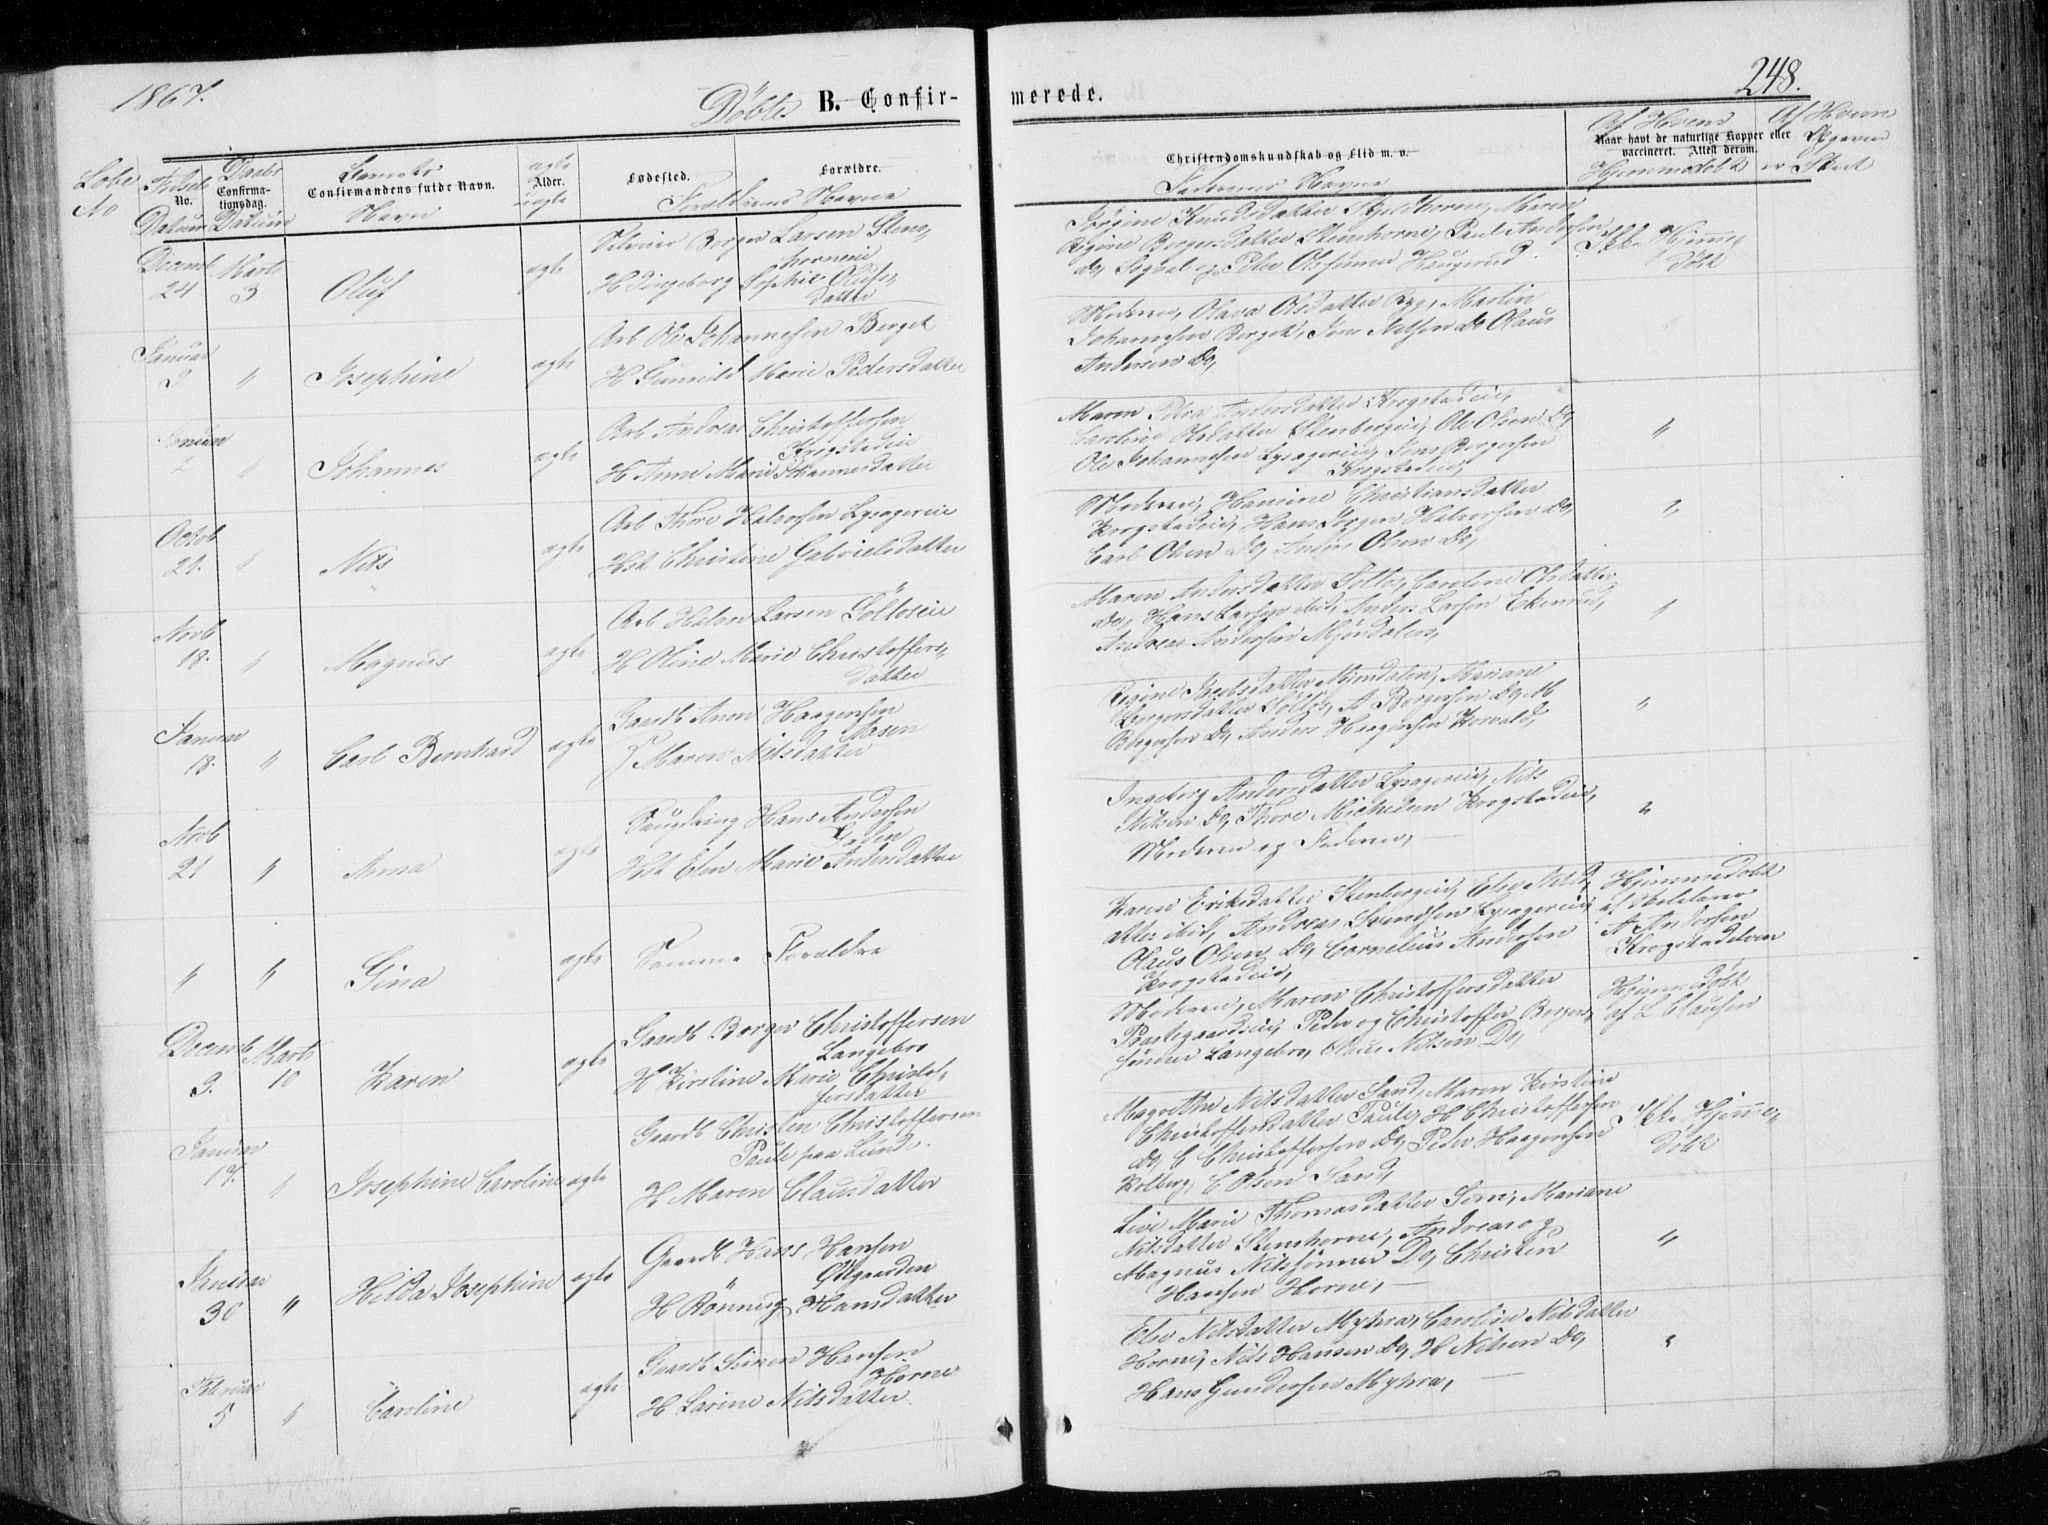 1867.
Döbte B. Confir-
merede.
248.
Løbe
No
Fødsels
No.
Datum
Daabs
Confirma-
tionsdag.
Datum
Barnets
Confirmandens fulde Navn.
Navn
ægte
Alder.
uægte
Fødested.
Forældre.
Forældrenes Navne
Christendomskundskab og Flid m. v.
Faderenes Navne
Af Hvem
Naar havt de naturlige Kopper eller
vaccineret. Attest derom.
Hjemmedöbt
Af Hvem
er Skeet
Decemb
24
Marts
3
Oluf
ægte
Borger Larsen Stens,
horneie
H Ingeborg Sophie Olufs,
datter
Jörgine Knudsdatter Skjelthorne, Maren
Regine Borgersdatter Stenshorne, Paul Andersen
do, og Peder Olssönner Haugerud
Ikke Hjemme,
döbt
Januar
9
"
Josephine
ægte
Arb Ole Johannesen Berget
H Gunnild Marie Pedersdatter
Moderen, Olava Olsdatter Ryg, Martin
Johannesen Berget, Jens Nilsen Do Olaus
Andersen Do,
"
Januar
2
"
Johannes
ægte
Arb Andreas Christoffersen
Krogstadeie
H Anne Marie Johannesdatter
Maren Petra Andersdatter Krogstadeie,
Caroline Olsdatter Stenbergeie, Ole Olsen Do,
Ole Johannesen Lysagereie, Jens Borgersen
Krogstadeie,
"
Octob
21.
"
Nils
ægte
Arb Thore Halvorsen Lysagereie
Hst Christine Gabrielsdatter
Moderen, Hansine Christiansdatter
Krogstadeie, Hans Jörgen Halvorsen Do,
Carl Olsen Do, Anders Olsen Do,
"
Novb
18.
"
Magnus
ægte
Arb Halvor Larsen Söltoseie
H Oline Marie Christoffers,
datter
Maren Andersdatter Solto, Caroline Olsdatter
do, Hans Larsen ibid, Anders Larsen Ekerud,
Andreas Andersen Mjördalen,
"
Januar
18.
"
Carl Bernhard
ægte
Gaardb Anon Haagensen
Mosen
H Maren Nilsdatter
Regine Jacobsdatter Mjördalen, Mariane
Borgersdatter Söltö, A Borgersen Do, M
Borgersen Do, Anders Haagensen Horvald,
"
Novb
21
"
Anna
ægte
Hans Andersen
Hst Elen Marie Andersdatter
Ingeborg Andersdatter Lysagereie, Nils
Nilsen Do, Thore Michelsen Krogstadeie,
Moderen og Faderen,
"
"
"
Gina
ægte
Samme Forældre
Karen Eriksdatter Stenbergeie, Else Nilsd,
atter ibid, Andreas Svendsen Lysagereie,
Olaus Olsen Do, Cornelius Andersen
Krogstadeie,
Hjemmedöbt
af Skolelærer
A Andersen
Krogstadelven
Decemb
9.
Marts
10
Karen
ægte
Gaardb Borger Christoffersen
Langebro
H Kirstine Marie Christof,
fersdatter
Moderen, Maren Christoffersdatter
Præstegaardeie, Peder og Christoffer Borger,
sönner Langebro, Olaus Nilsen Do,
Hjemmedöbt
af L Clausen
Januar
17.
"
Josephine Caroline
ægte
Gaardb Christen Christoffersen
Paule paa Lund.
H Maren Clausdatter
Magrethe Nilsdatter Sand, Maren Kirstine
Christoffersdatter Paule, H Christoffersen
do, C Christoffersen Do, Peder Haagensen
Kolberg, C Olsen Sand,
Ikke Hjemme,
döbt
Januar
30
"
Hilda Josephine
ægte
Gaardb Hans Hansen
Østgaarden
H Rönnug Hansdatter
Live Marie Thomasdatter Lom, Mariane
Nilsdatter Stenshorne, Andreas og
Magnus Nilssönner Do, Christen
Hansen Horne,
"
Februar
5
"
Caroline
ægte
Gaardb Simen Hansen
Horne
H Larine Nilsdatter.
Else Nilsdatter Myhra, Caroline Nilsdatter
Horne, Nils Hansen Do, H Nilsen Do,
Hans Gundersen Myhra,
"